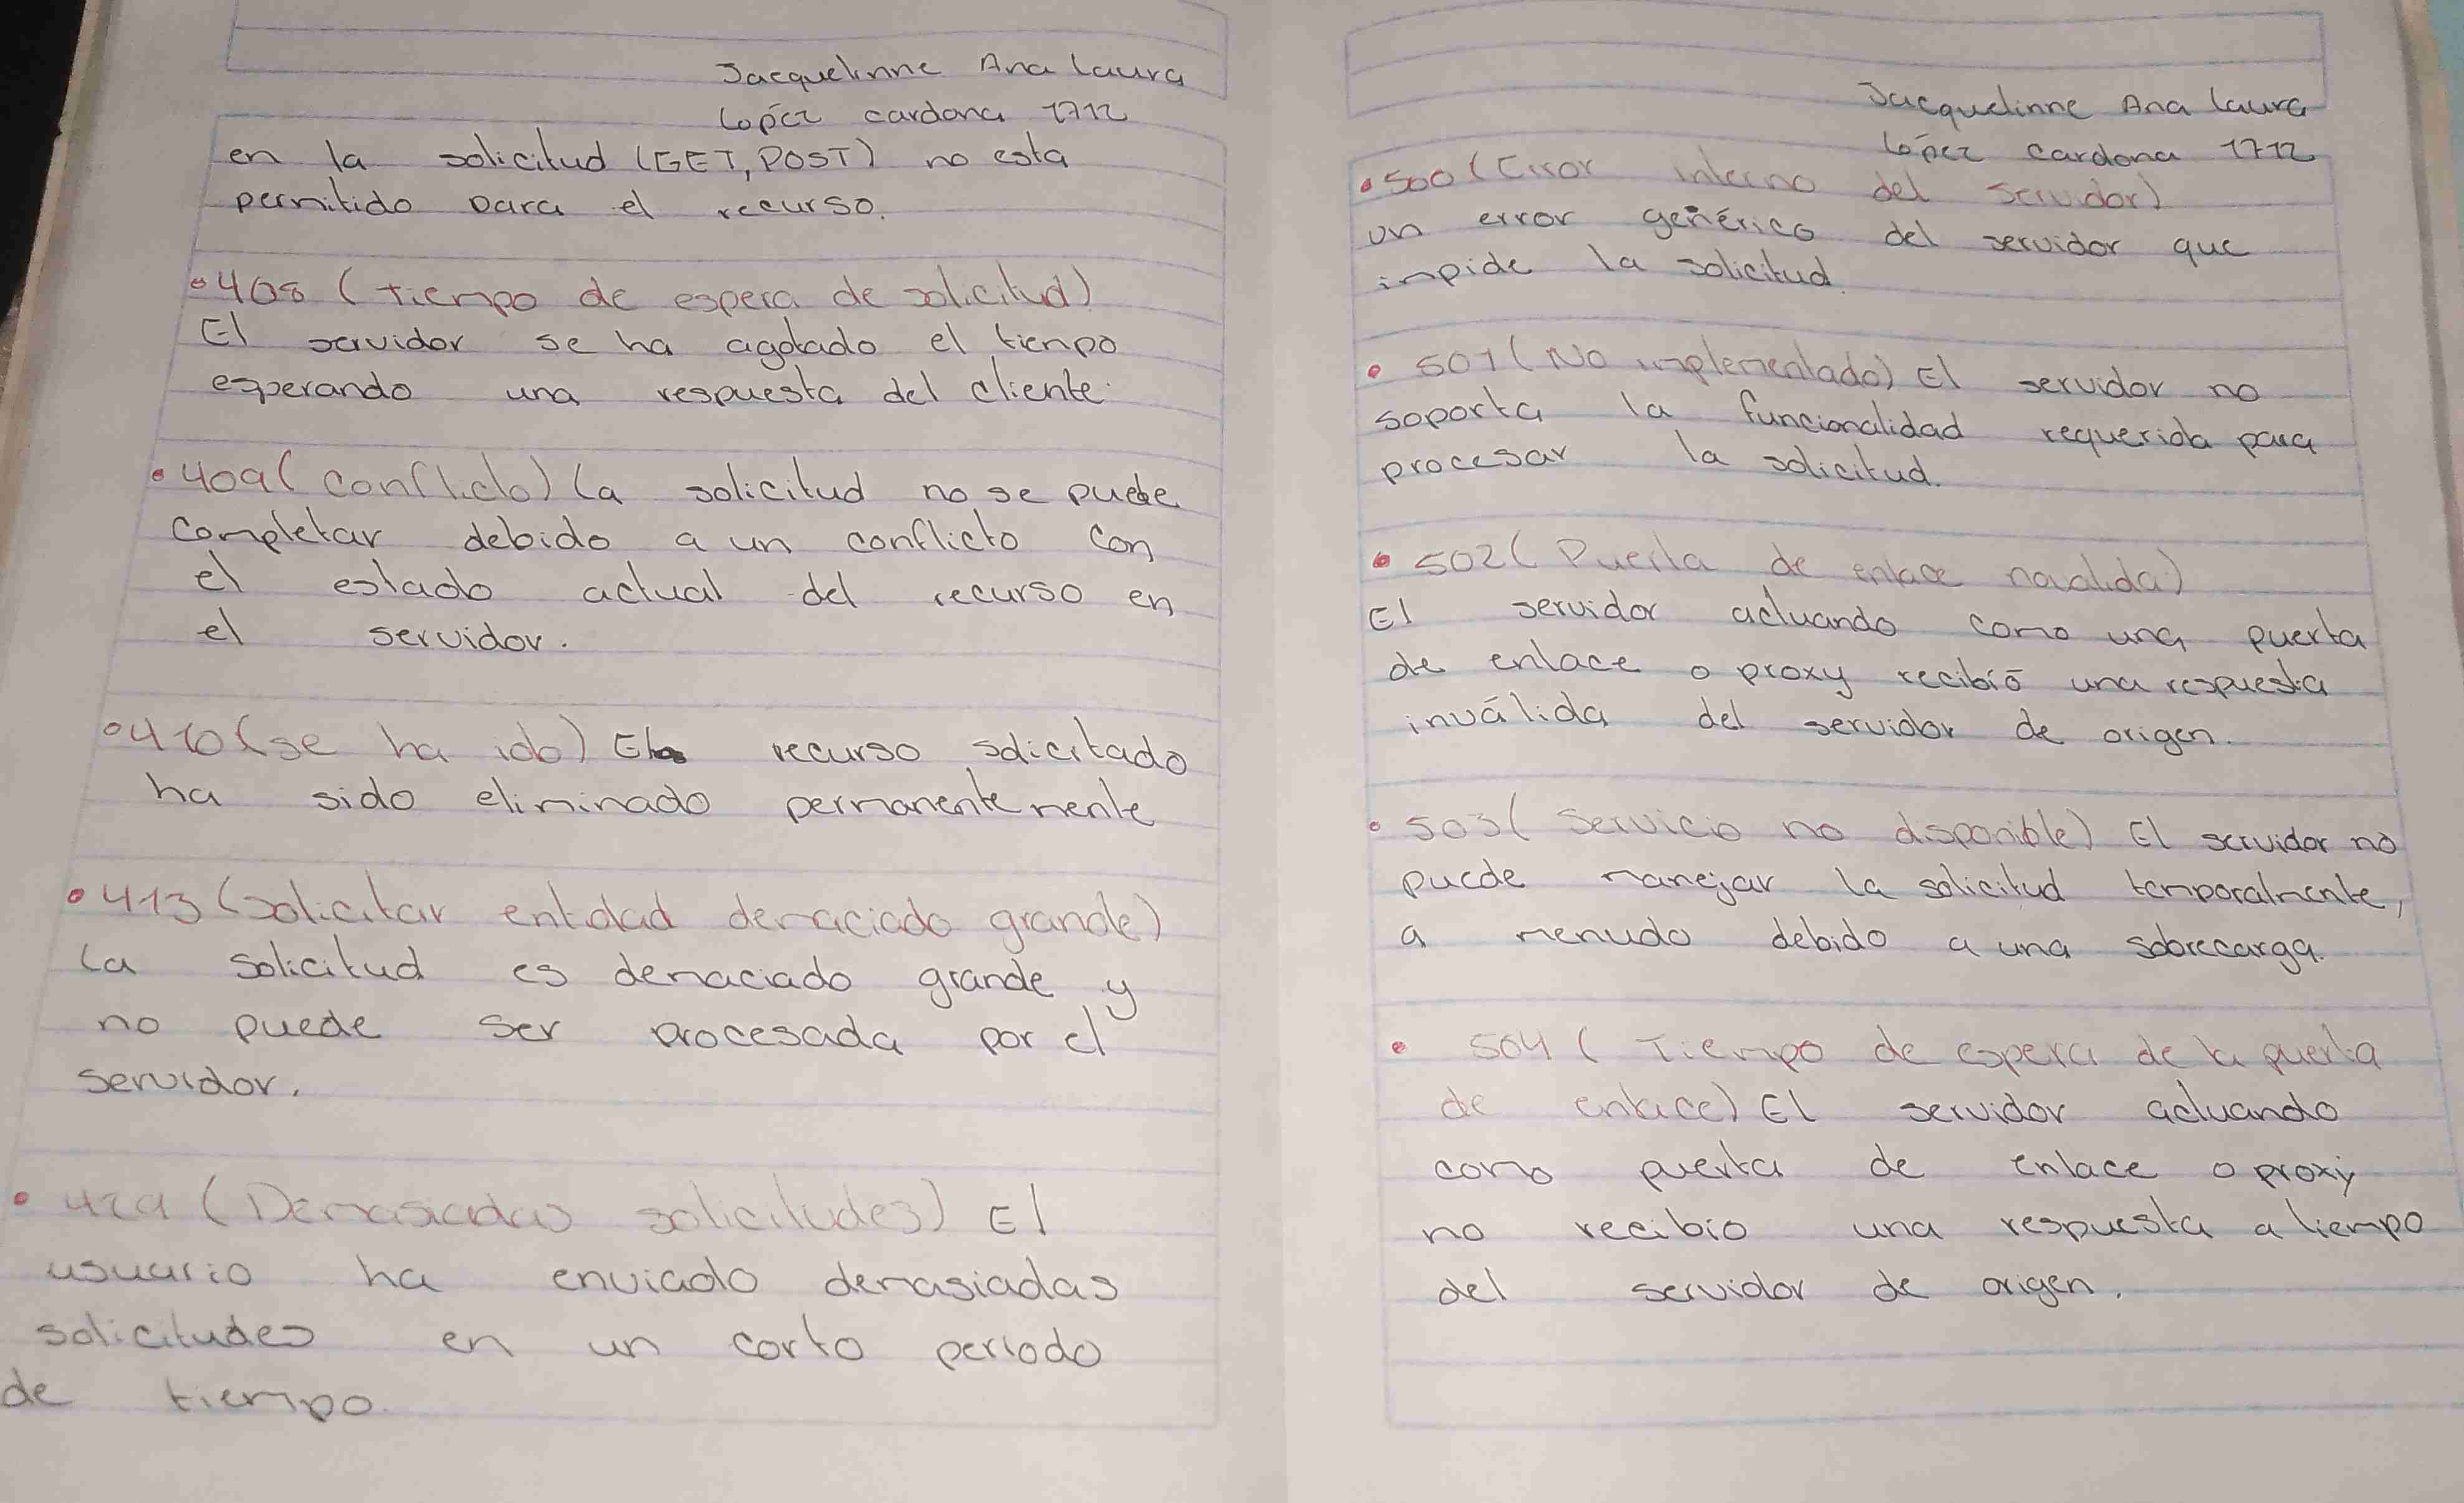 Jacquelinne Ana Laura
Lopéz cardona 1712
en la solicitud (GET, POST) no esta
permitido para el recurso.
•408 (tiempo de espera de solicitud)
El servidor se ha agotado el tiempo
esperando una respuesta del cliente.
•409 (conflicto) La solicitud no se puede
completar debido a un conflicto con
el estado actual del recurso en
el servidor.
•410 (se ha ido) El recurso solicitado
ha sido eliminado permanentemente
•413 (solicitar entidad demaciado grande)
La solicitud es demaciado grande y
no puede ser procesada por el
servidor.
• 429 (Demasiadas solicitudes) El
usuario ha enviado demasiadas
solicitudes en un corto periodo
de tiempo.
Jacquelinne Ana Laura
Lopéz cardona 1712
•500 (Error interno del servidor)
un error genérico del servidor que
impide la solicitud.
• 501 (No implementado) El servidor no
soporta la funcionalidad requerida para
procesar la solicitud.
• 502 (Puerta de enlace no valida)
El servidor actuando como una puerta
de enlace o proxy recibió una respuesta
inválida del servidor de origen.
• 503 (Servicio no disponible) El servidor no
puede manejar la solicitud temporalmente,
a menudo debido a una sobrecarga.
• 504 (Tiempo de espera de la puerta
de enlace) El servidor actuando
como puerta de enlace o proxy
no recibio una respuesta a tiempo
del servidor de origen.